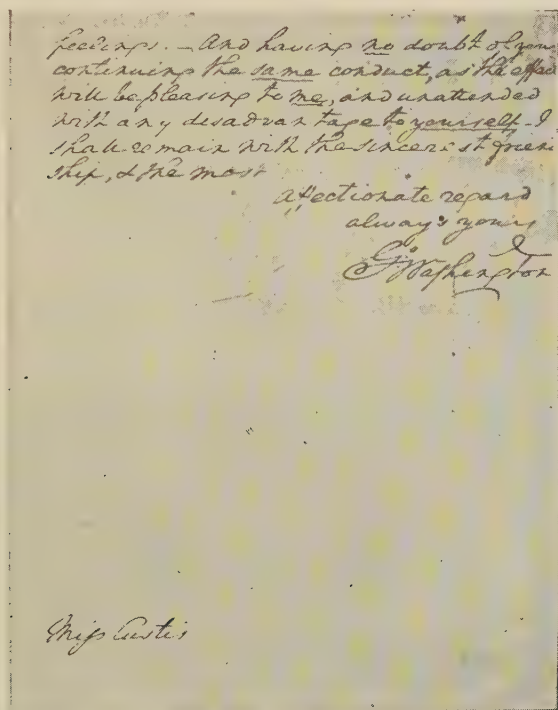 feelings. — And having no doubt of your
continuing the same conduct, as the effect
will be pleasing to me, and unattended
with any disadvantage to yourself. I
shall remain with the sincerest friend
ship, & the most
affectionate regard
always yours
G:Washington
Miss Custis